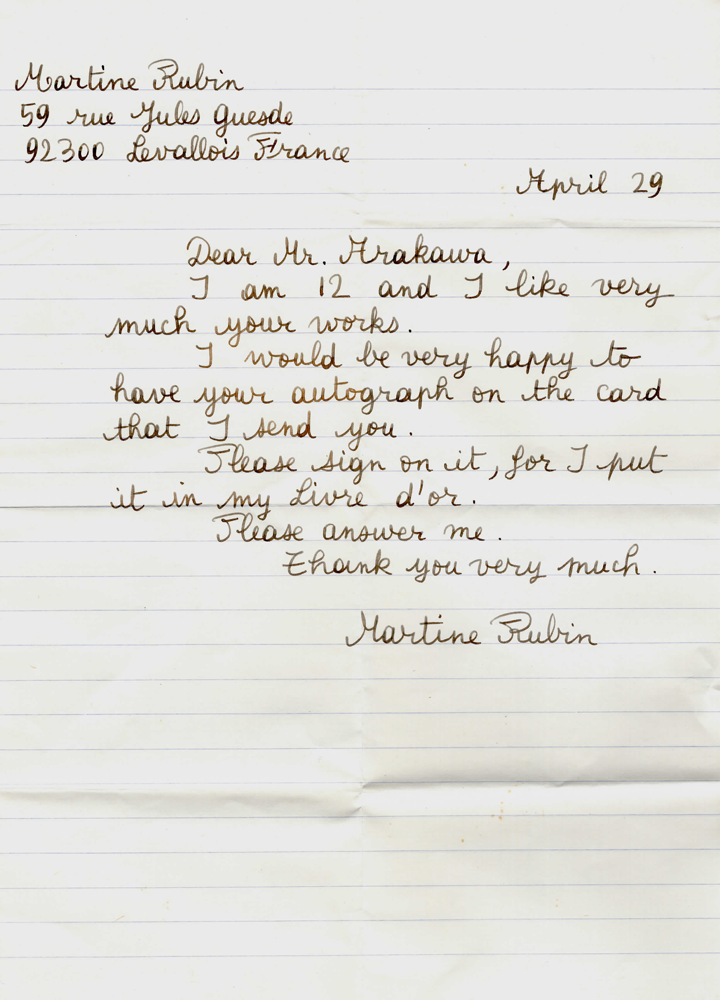 Martine Rubin
59 rue Jules Guesde
92300 Levallois France
April 29
Dear Mr. Arakawa,
I am 12 and I like very
much your works.
I would be very happy to
have your autograph on the card
that I send you.
Please sign on it, for I put
it in my Livre d'or.
Please answer me.
Thank you very much.
Martine Rubin